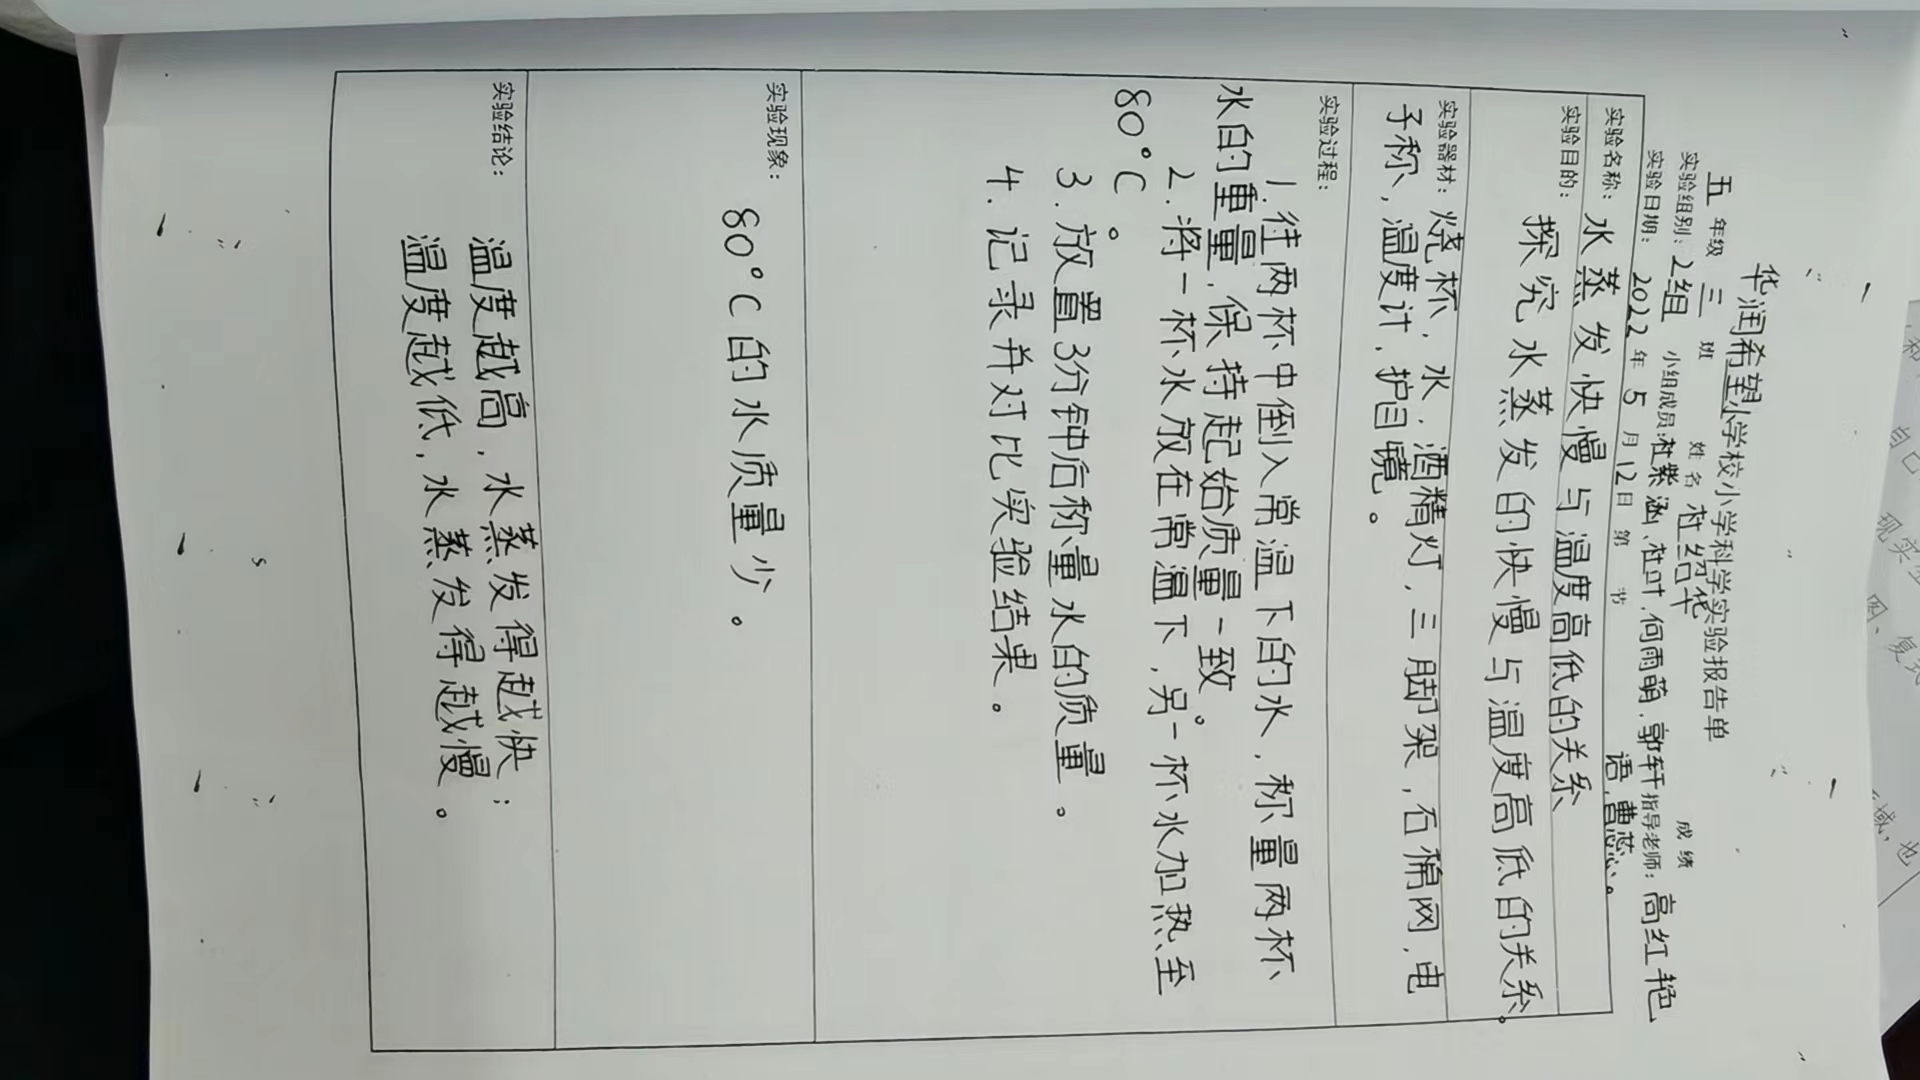 华润希望小学校小学科学实验报告单
五年级 三 班 姓名 杜绍华 成绩
实验组别：2组 小组成员：杜紫涵、杜叶、何雨萌、郭轩语、曹蕊心。 指导老师：高红艳
实验日期：2022年5月12日 第 节
实验名称：水蒸发快慢与温度高低的关系
实验目的：
探究水蒸发的快慢与温度高低的关系。
实验器材：烧杯、水、酒精灯、三脚架、石棉网、电
子称、温度计、护目镜。
实验过程：
1.往两杯中倒入常温下的水，称量两杯
水的重量，保持起始质量一致。
2.将一杯水放在常温下，另一杯水加热至
80°C。
3.放置3分钟后称量水的质量。
4.记录并对比实验结果。
实验现象：
80°C的水质量少。
实验结论：
温度越高，水蒸发得越快；
温度越低，水蒸发得越慢。